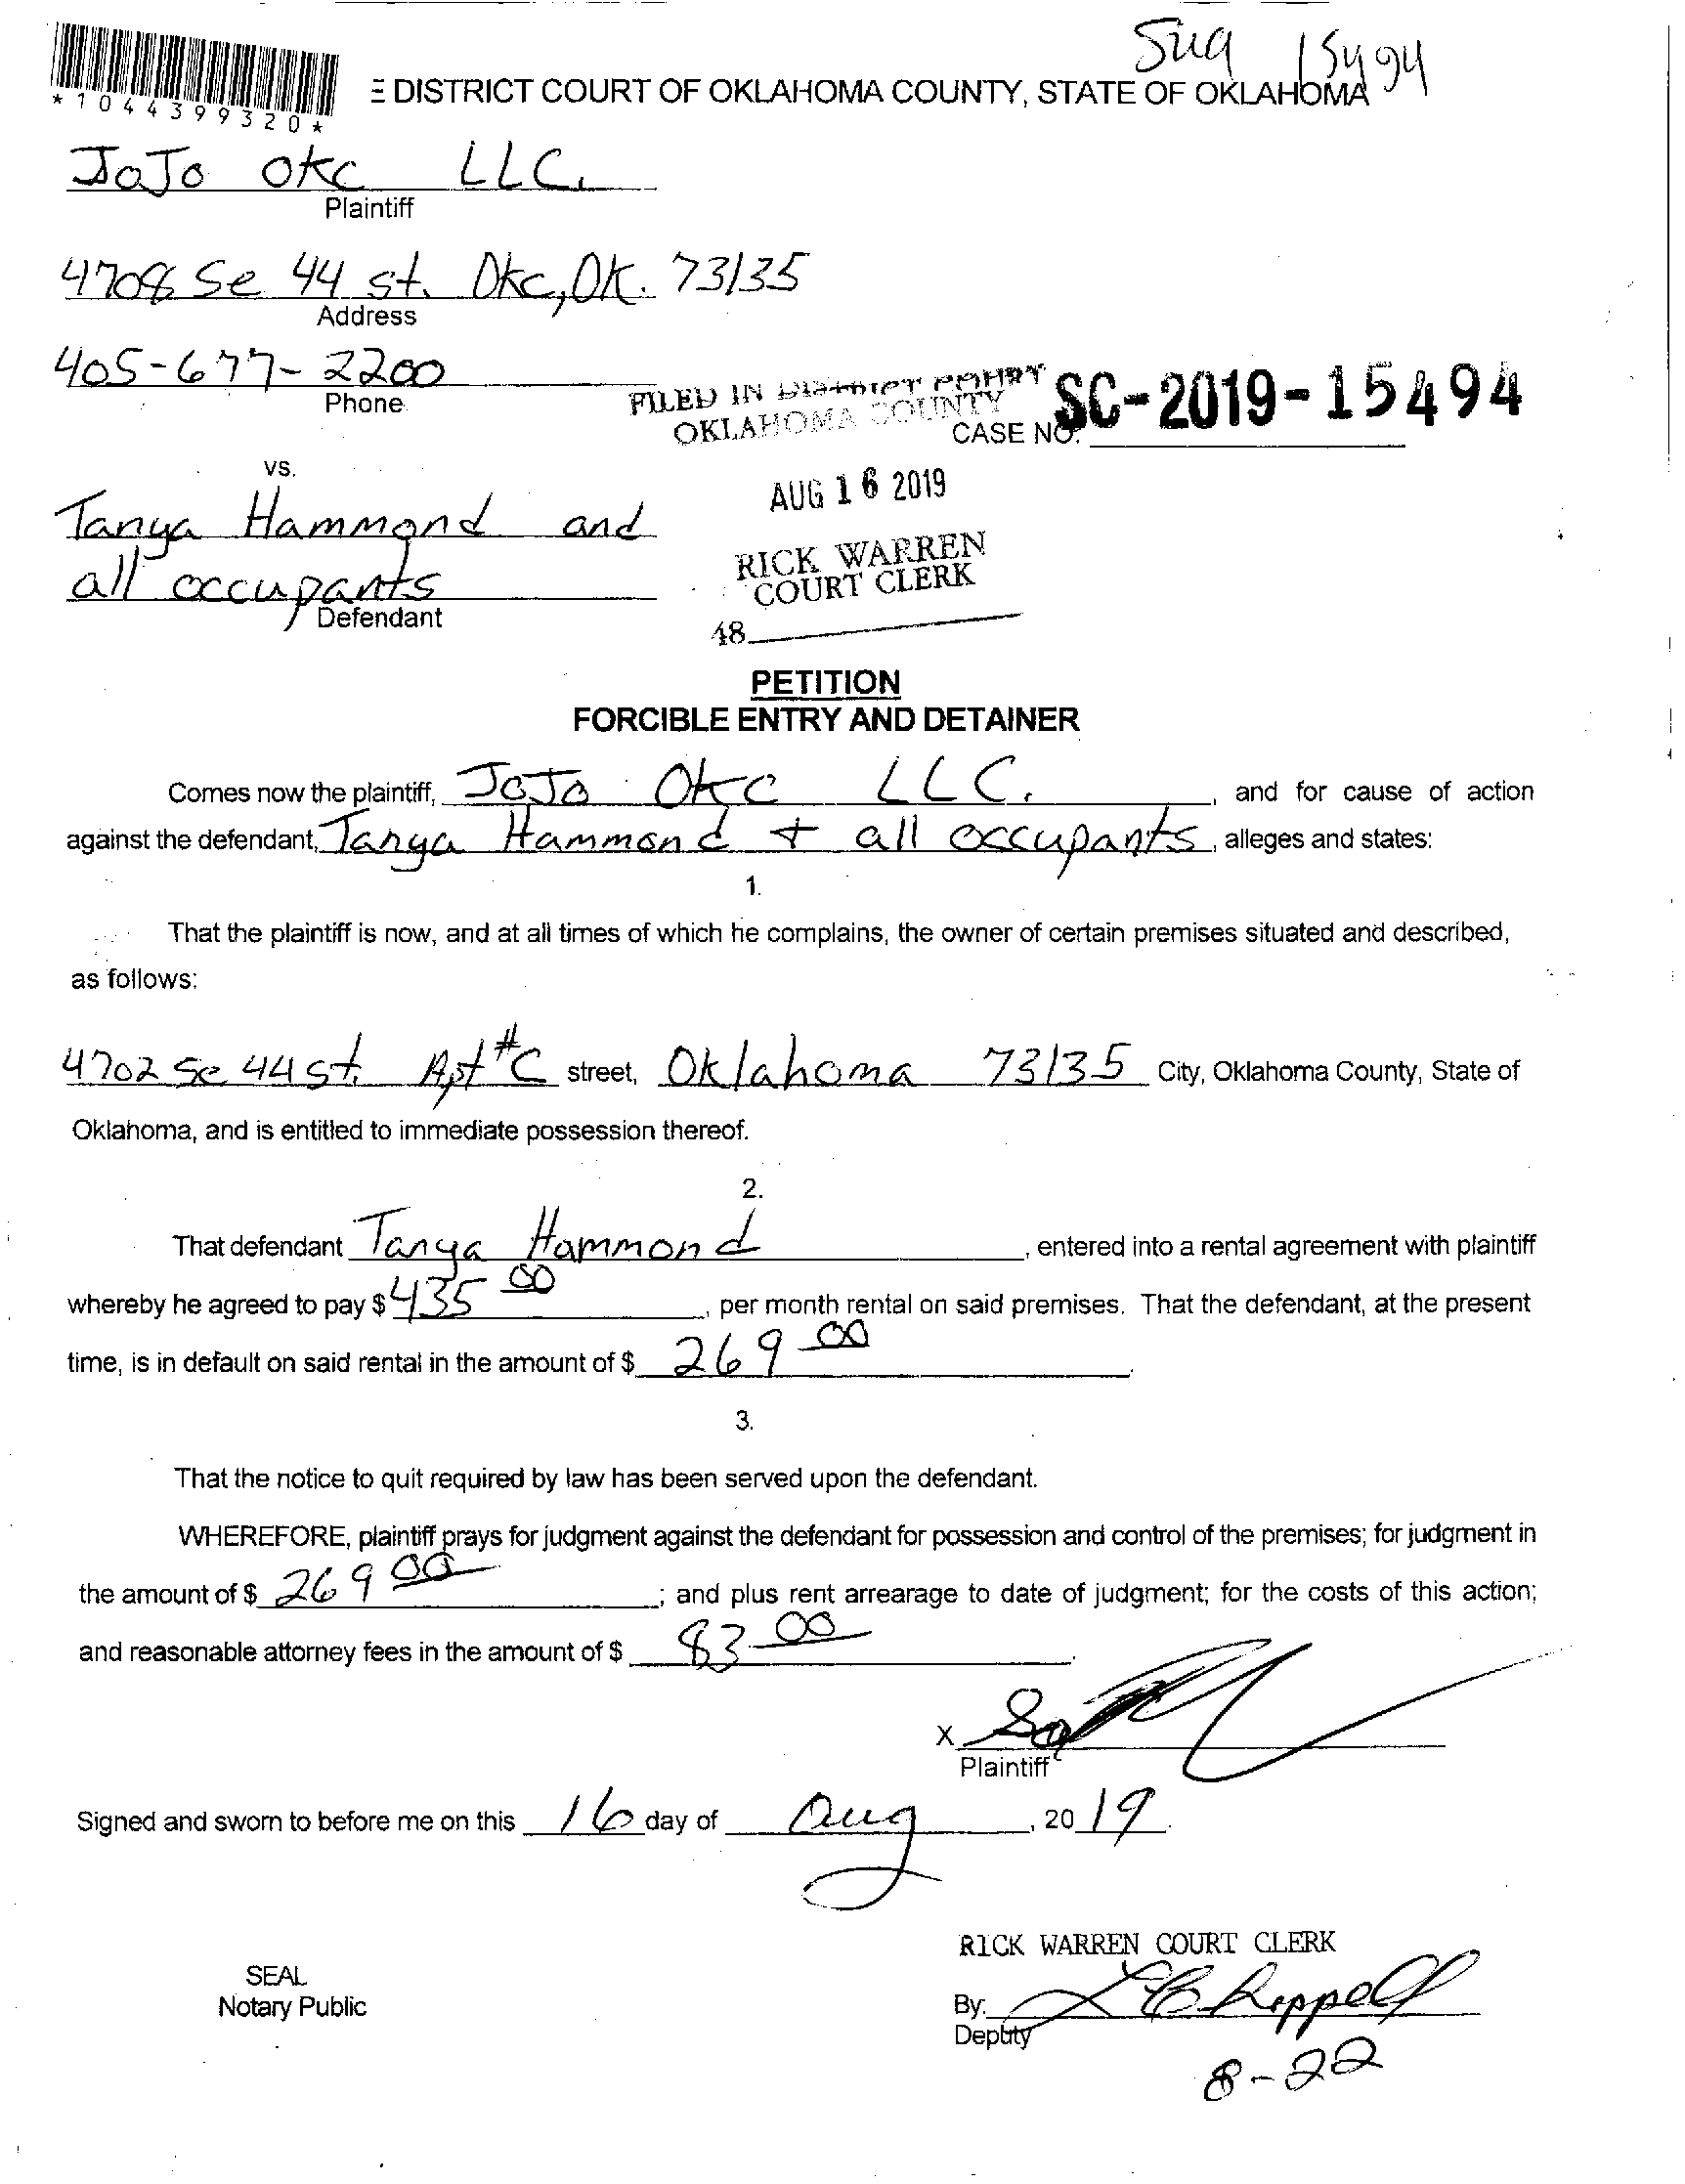 Sug 15494
*1044399320*
E DISTRICT COURT OF OKLAHOMA COUNTY, STATE OF OKLAHOMA
JoJo OKC LLC.
Plaintiff
4708 Se 44 st. Okc, OK. 73135
Address
405-677-2200
Phone
FILED IN DISTRICT COURT
OKLAHOMA COUNTY
CASE NO. SC-2019-15494
vs.
AUG 16 2019
Tanya Hammond and
all occupants
Defendant
RICK WARREN
COURT CLERK
48
PETITION
FORCIBLE ENTRY AND DETAINER
Comes now the plaintiff, JoJo OKC LLC. , and for cause of action
against the defendant, Tanya Hammond + all occupants, alleges and states:
1.
That the plaintiff is now, and at all times of which he complains, the owner of certain premises situated and described,
as follows:
4702 Se 44 st. Apt #C street, Oklahoma 73135 City, Oklahoma County, State of
Oklahoma, and is entitled to immediate possession thereof.
2.
That defendant Tanya Hammond, entered into a rental agreement with plaintiff
whereby he agreed to pay $ 435 00, per month rental on said premises. That the defendant, at the present
time, is in default on said rental in the amount of $ 269 00.
3.
That the notice to quit required by law has been served upon the defendant.
WHEREFORE, plaintiff prays for judgment against the defendant for possession and control of the premises; for judgment in
the amount of $ 269 00; and plus rent arrearage to date of judgment; for the costs of this action;
and reasonable attorney fees in the amount of $ 83 00.
X
Plaintiff
Signed and sworn to before me on this 16 day of Aug, 20 19.
RICK WARREN COURT CLERK
SEAL
Notary Public
By:
Deputy
8-22